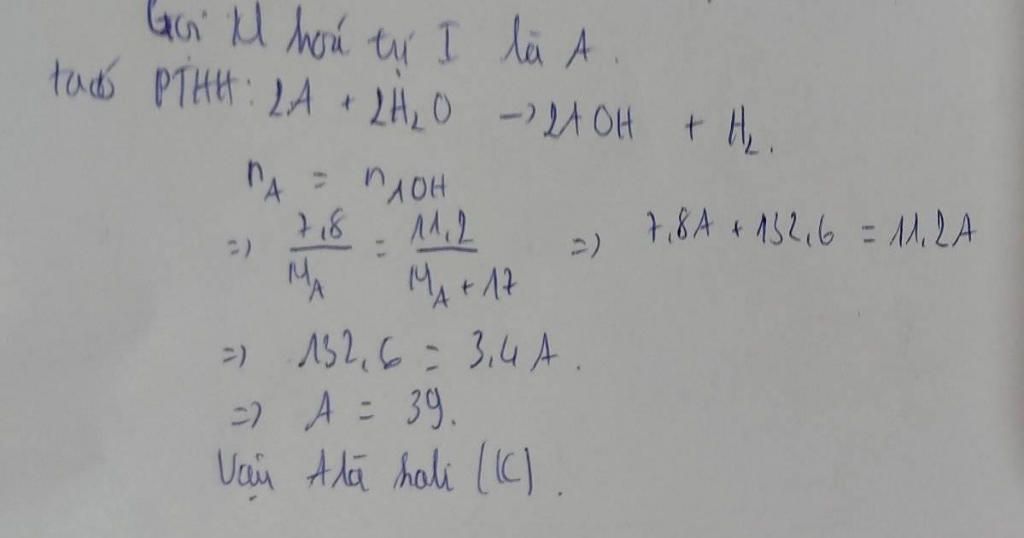 Gọi KL hoá trị I là A.
ta có PTHH: 2A + 2H₂O → 2AOH + H₂.
n_A = n_AOH
=> 7,8/M_A = 11,2/(M_A + 17) => 7,8A + 132,6 = 11,2A
=> 132,6 = 3,4A.
=> A = 39.
Vậy A là kali (K).